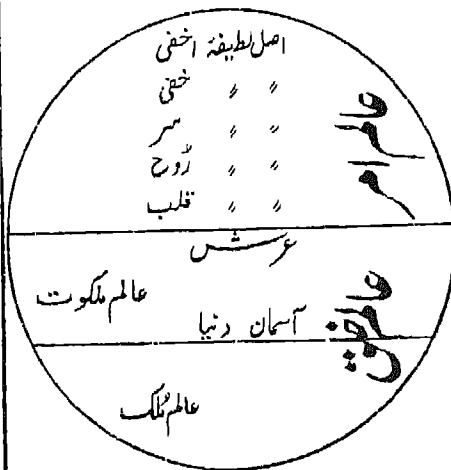 اصل لطیفۂ اخفٰی
〃 〃 خفی
〃 〃 سر
〃 〃 رُوح
〃 〃 قلب
عالم امر
عرش
عالم ملکوت
آسمان دنیا
عالم خلق
عالم مُلک